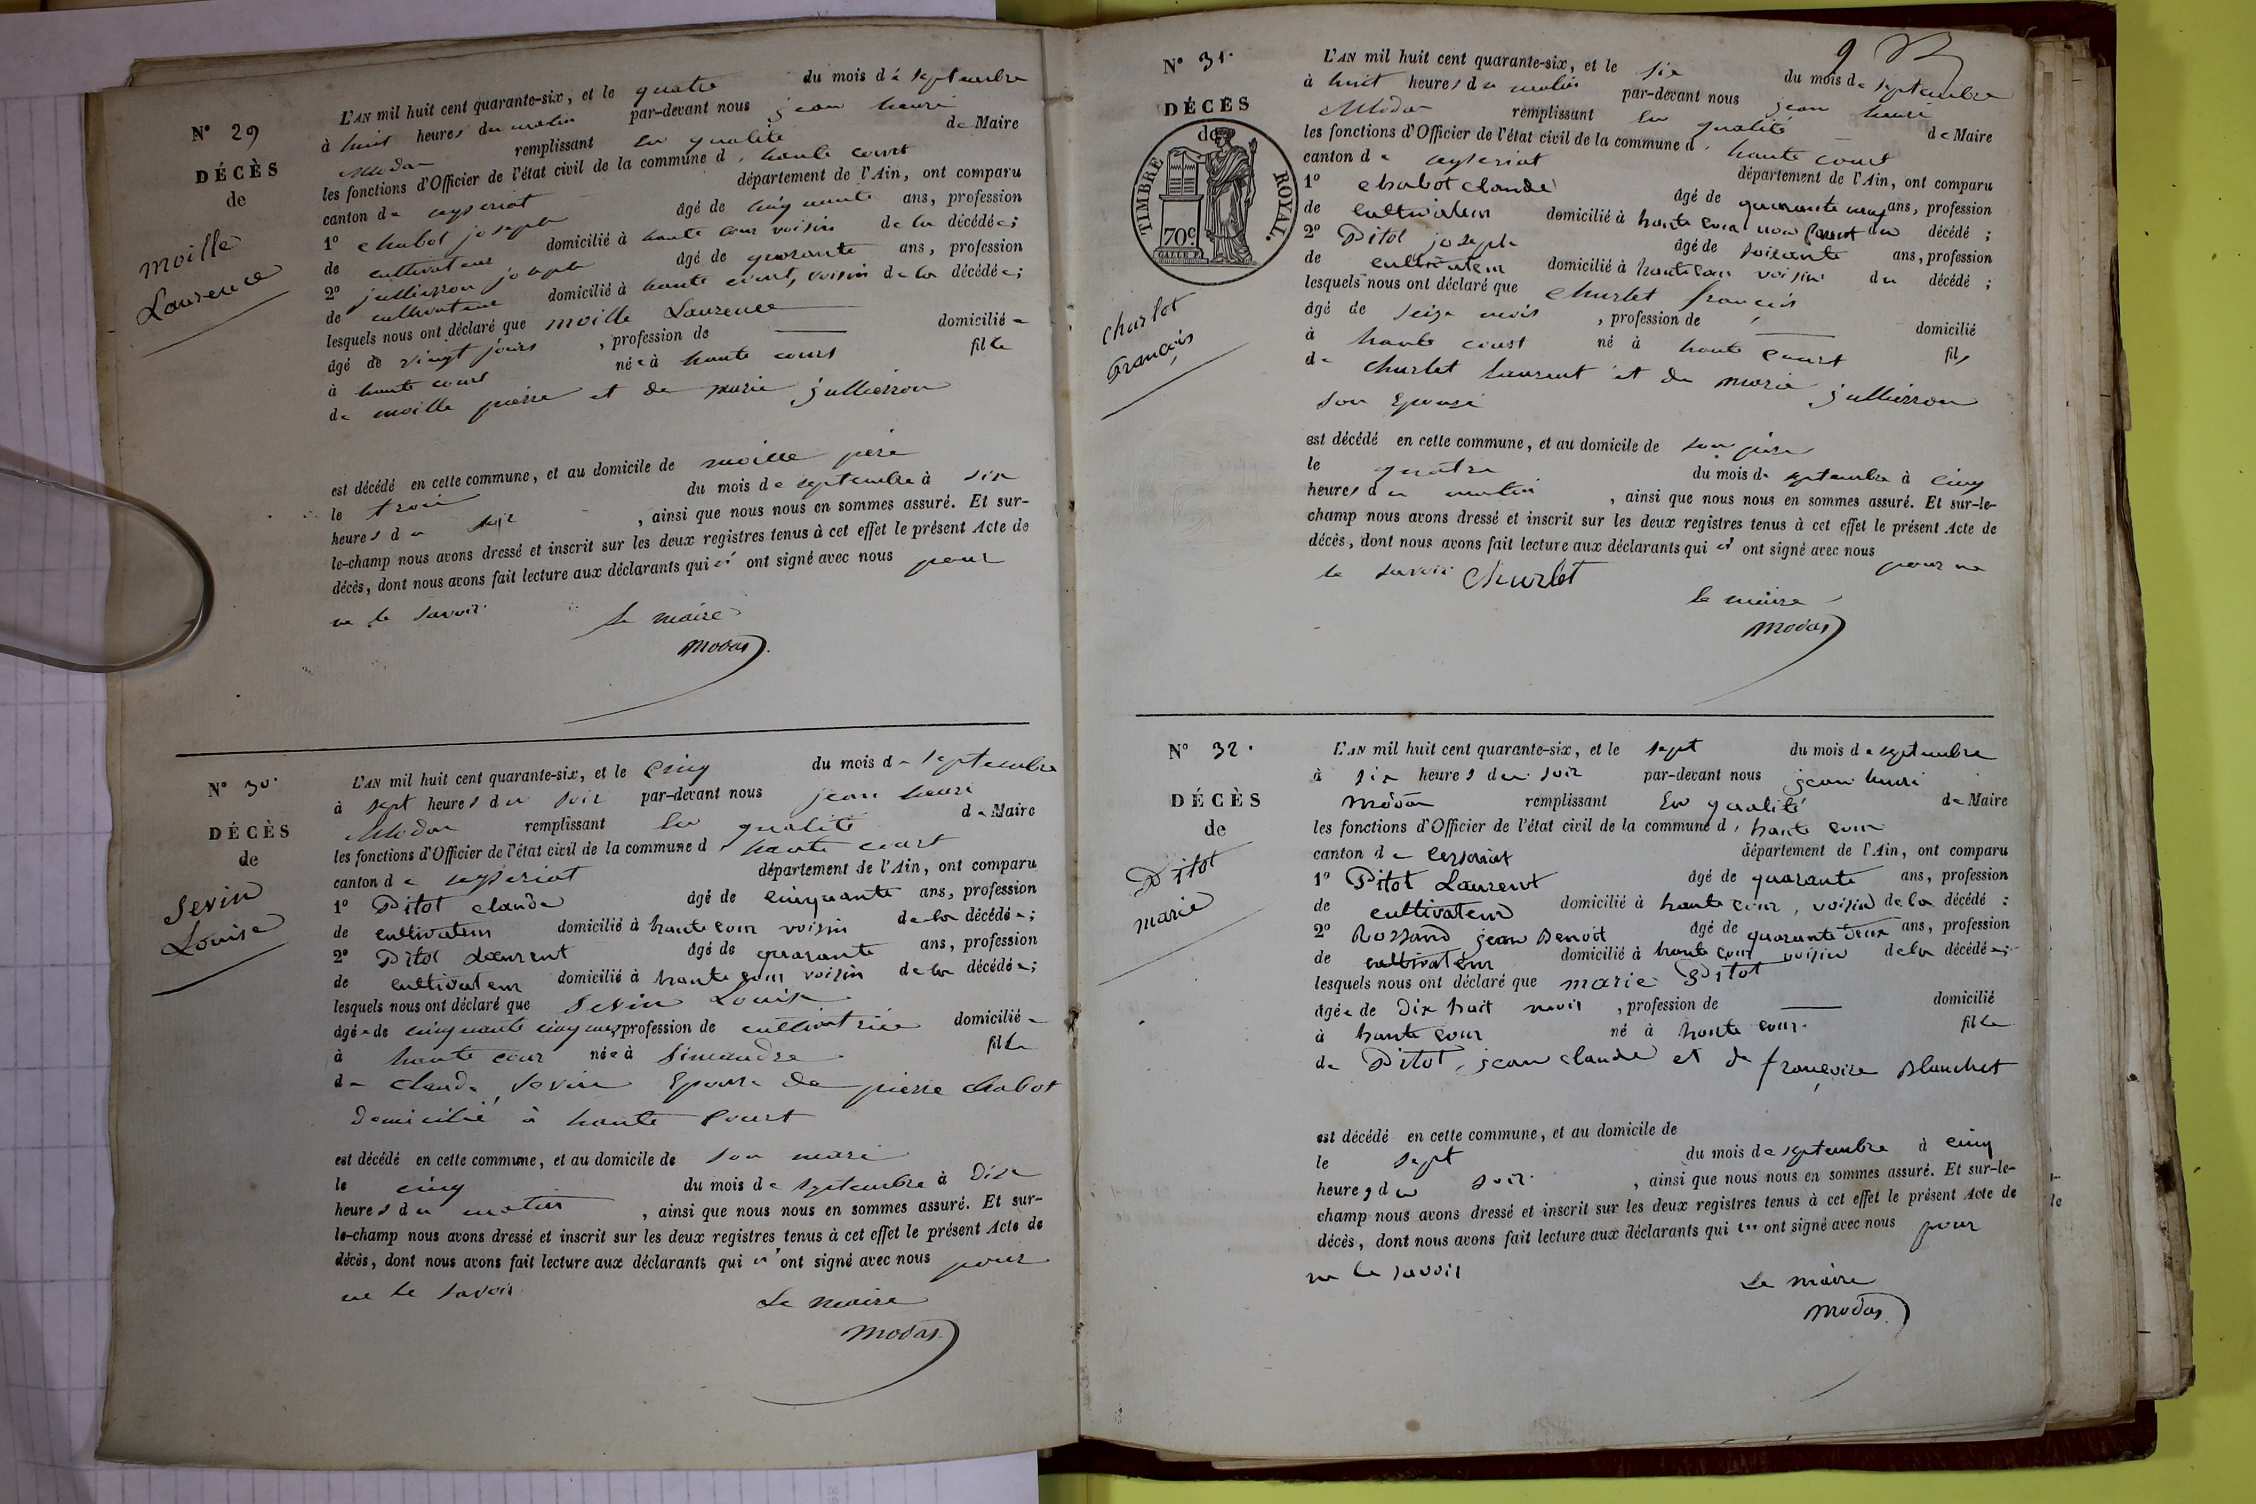 N° 29
DÉCÈS
de
moille
Laurence
L'AN mil huit cent quarante-six, et le quatre du mois de septembre
à huit heures du matin par-devant nous jean henri
Modas remplissant en qualité de Maire
les fonctions d'Officier de l'état civil de la commune d' haute court
canton de ceyseriat département de l'Ain, ont comparu
1° chabot joseph âgé de cinquante ans, profession
de cultivateur domicilié à haute cour voisin de la décédée;
2° jullierron joseph âgé de quarante ans, profession
de cultivateur domicilié à haute court, voisin de la décédée;
lesquels nous ont déclaré que moille Laurence
âgé de vingt jours, profession de domiciliée
à haute court née à haute court fille
de moille pierre et de marie jullierron
est décédé en cette commune, et au domicile de moille père
le trois du mois de septembre à six
heures du soir, ainsi que nous nous en sommes assuré. Et sur-
le-champ nous avons dressé et inscrit sur les deux registres tenus à cet effet le présent Acte de
décès, dont nous avons fait lecture aux déclarants qui n' ont signé avec nous pour
ne le savoir
Le maire
Modas
N° 30.
DÉCÈS
de
Sevin
Louise
L'AN mil huit cent quarante-six, et le cinq du mois de septembre
à sept heures du soir par-devant nous jean henri
Modas remplissant en qualité de Maire
les fonctions d'Officier de l'état civil de la commune d' haute court
canton de ceyseriat département de l'Ain, ont comparu
1° Pitot claude âgé de cinquante ans, profession
de cultivateur domicilié à haute cour voisin de la décédée;
2° Pitot Laurent âgé de quarante ans, profession
de cultivateur domicilié à haute cour voisin de la décédée;
lesquels nous ont déclaré que Sevin Louise
âgée de cinquante cinq ans, profession de cultivatrice domiciliée
à haute cour née à Simandre fille
de claude Sevin Epouse de pierre chabot
domicilié à haute court
est décédé en cette commune, et au domicile de son mari
le cinq du mois de septembre à Dix
heures du matin, ainsi que nous nous en sommes assuré. Et sur-
le-champ nous avons dressé et inscrit sur les deux registres tenus à cet effet le présent Acte de
décès, dont nous avons fait lecture aux déclarants qui n' ont signé avec nous pour
ne le savoir
Le maire
Modas
9
N° 31.
DÉCÈS
de
TIMBRE ROYAL.
70c
churlet
françois
L'AN mil huit cent quarante-six, et le six du mois de septembre
à huit heures du matin par-devant nous jean henri
Modas remplissant en qualité de Maire
les fonctions d'Officier de l'état civil de la commune d' haute court
canton de ceyseriat département de l'Ain, ont comparu
1° chabot claude âgé de quarante cinq ans, profession
de cultivateur domicilié à haute cour non parent du décédé;
2° Pitot joseph âgé de soixante ans, profession
de cultivateur domicilié à haute cour voisin du décédé;
lesquels nous ont déclaré que churlet françois
âgé de seize mois, profession de domicilié
à haute court né à haute court fils
de churlet Laurent et de marie jullierron
son Epouse
est décédé en cette commune, et au domicile de son père
le quatre du mois de septembre à cinq
heures du matin, ainsi que nous nous en sommes assuré. Et sur-le-
champ nous avons dressé et inscrit sur les deux registres tenus à cet effet le présent Acte de
décès, dont nous avons fait lecture aux déclarants qui n' ont signé avec nous pour ne
le savoir Churlet
le maire
Modas
N° 32.
DÉCÈS
de
Pitot
marie
L'AN mil huit cent quarante-six, et le sept du mois de septembre
à six heures du soir par-devant nous jean henri
Modas remplissant En qualité de Maire
les fonctions d'Officier de l'état civil de la commune d' haute cour
canton de département de l'Ain, ont comparu
1° Pitot Laurent âgé de quarante ans, profession
de cultivateur domicilié à haute cour, voisin de la décédé;
2° Rossand jean Benoit âgé de quarante deux ans, profession
de cultivateur domicilié à haute cour voisin de la décédée;
lesquels nous ont déclaré que marie Pitot
âgée de Dix huit mois, profession de domicilié
à haute cour né à haute cour fille
de Pitot, jean claude et de françoise Blanchet
est décédé en cette commune, et au domicile de
le sept du mois de septembre à cinq
heures du soir, ainsi que nous nous en sommes assuré. Et sur-le-
champ nous avons dressé et inscrit sur les deux registres tenus à cet effet le présent Acte de
décès, dont nous avons fait lecture aux déclarants qui n' ont signé avec nous pour
ne le savoir
Le maire
Modas